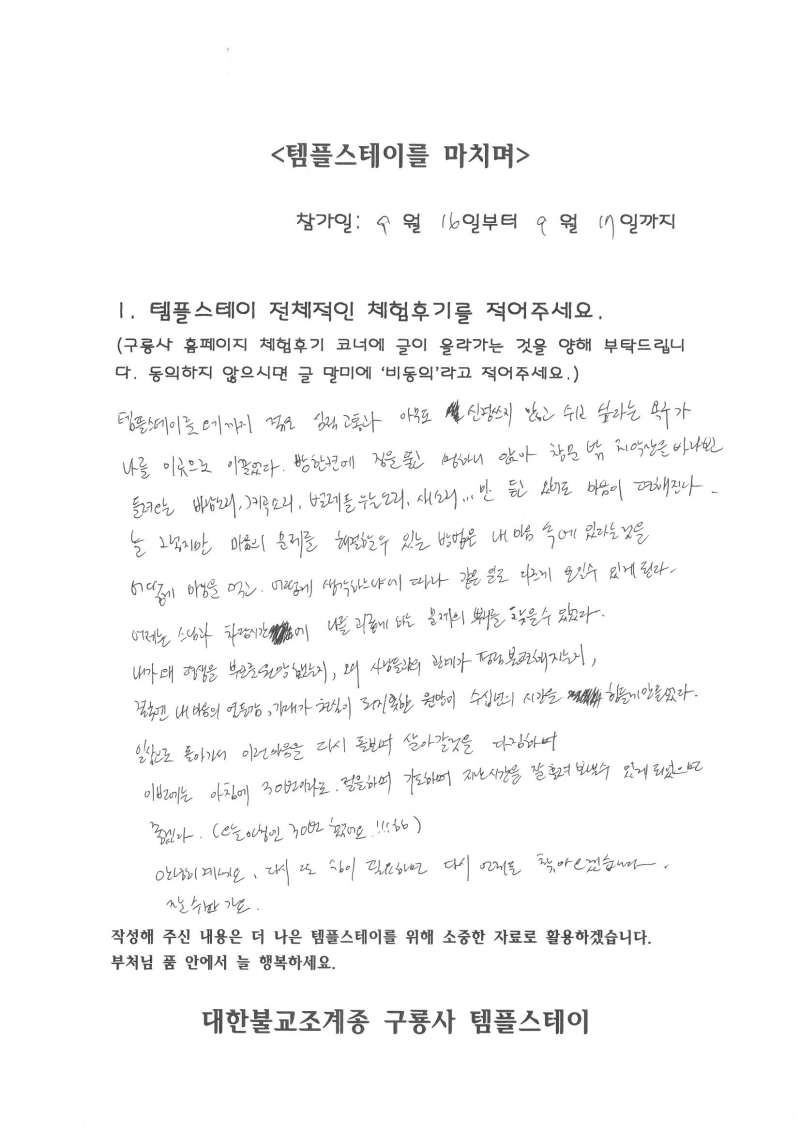 <템플스테이를 마치며>
참가일: 9 월 16일부터 9 월 17일까지
1. 템플스테이 전체적인 체험후기를 적어주세요.
(구룡사 홈페이지 체험후기 코너에 글이 올라가는 것을 양해 부탁드립니
다. 동의하지 않으시면 글 말미에 '비동의'라고 적어주세요.)
템플스테이를 오기까지 겪은 심적 고통과 아무도 신경쓰지 않고 쉬고 싶다는 욕구가
나를 이곳으로 이끌었다. 방한켠에 짐을 풀고 멍하니 앉아 창문 밖 치악산을 바라보면
들려오는 바람소리, 계곡소리, 벌레들 우는소리, 새소리... 만 듣고 있어도 마음이 편해진다.
늘 그렇지만 마음의 문제를 해결할수 있는 방법은 내 마음 속에 있다는것을
어떻게 마음을 먹고. 어떻게 생각하느냐에 따라 같은 일도 다르게 보일수 있게 된다.
어제는 스님과 차담시간에 나를 괴롭게 하는 문제의 뿌리를 찾을수 있었다.
내가 왜 평생을 부모를 원망했는지, 왜 사람들과의 관계가 불편해지는지,
결국엔 내 마음의 열등감, 기대가 현실이 되지못한 원망이 수십년의 시간을 힘들게 만들었다.
일상으로 돌아가서 이런 마음을 다시 돌보며 살아갈것을 다짐하며
이번에는 아침에 30번이라도 절을하며 기도하며 지난시간을 잘 흘려 보낼수 있게 되었으면
좋겠다. (오늘아침엔 30번 했어요!!!)
안녕히 계세요. 다시 또 쉼이 필요하면 다시 언제든 찾아오겠습니다.
잘 쉬다 가요.
작성해 주신 내용은 더 나은 템플스테이를 위해 소중한 자료로 활용하겠습니다.
부처님 품 안에서 늘 행복하세요.
대한불교조계종 구룡사 템플스테이